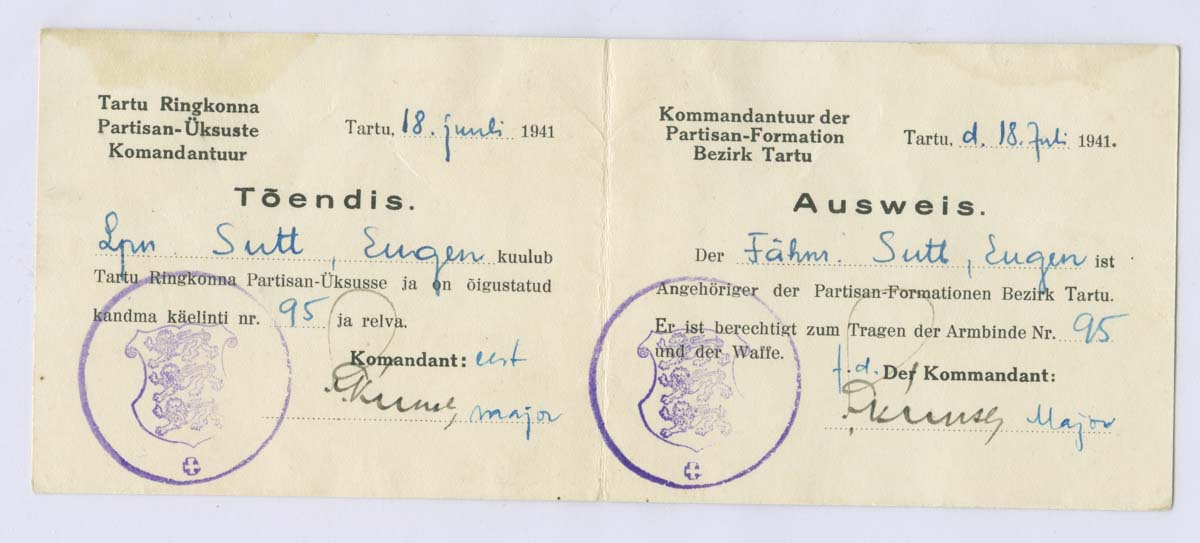 Tartu Ringkonna
Partisan-Üksuste
Komandantuur
Tartu, 18. juuli 1941
Tõendis.
Lpn. Sutt, Eugen kuulub
Tartu Ringkonna Partisan-Üksusse ja on õigustatud
kandma käelinti nr. 95 ja relva.
Komandant: eest
major
Kommandantuur der
Partisan-Formation
Bezirk Tartu
Tartu, d. 18. Juli 1941.
Ausweis.
Der Fähnr. Sutt, Eugen ist
Angehöriger der Partisan-Formationen Bezirk Tartu.
Er ist berechtigt zum Tragen der Armbinde Nr. 95
und der Waffe.
f. d. Der Kommandant:
Major